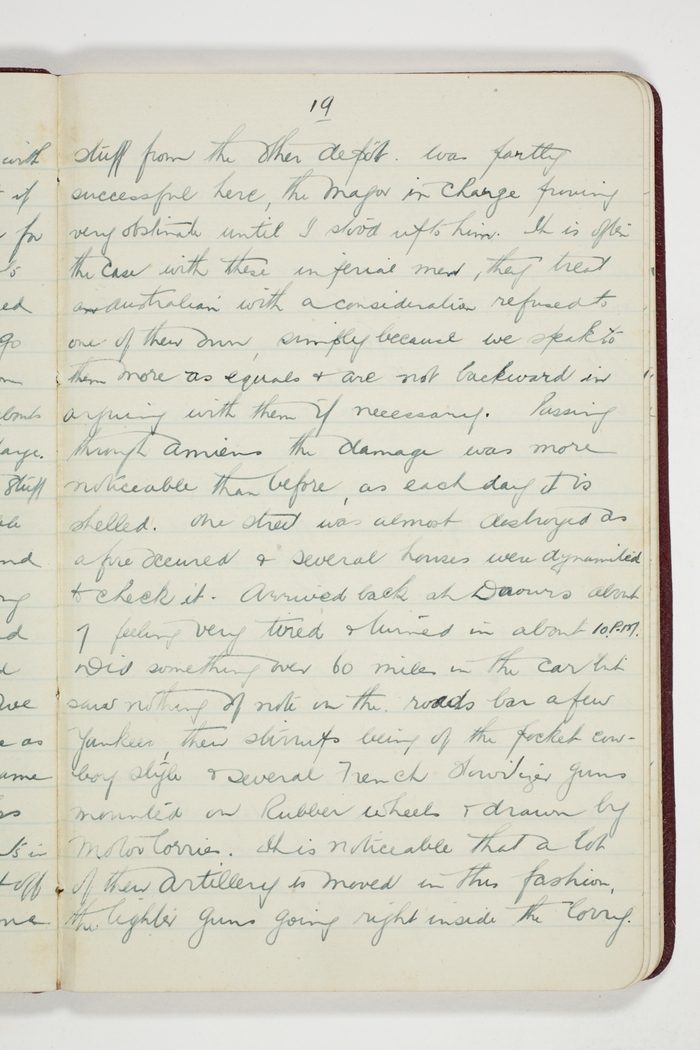 19
with
stuff from the other depôt. was partly
if
successful here, the Major in Charge proving
for
very obstinate until I stood up to him. It is often
the case with these imperial men, they treat
ed
an australian with a consideration refused to
go
one of their own, simply because we speak to
them more as equals & are not backward in
arguing with them if necessary. Passing
through Amiens the damage was more
stuff
noticeable than before, as each day it is
shelled. One street was almost destroyed as
nd
a fire occured & several houses were dynamited
to check it. Arrived back at Daours about
7 feeling very tired & turned in about 10 P.M.
Did something over 60 miles in the car but
saw nothing of note on the roads bar a few
Yankees, their stirrups being of the pocket cow-
ame
boy style & several French Howitzer guns
mounted on Rubber wheels & drawn by
Motor lorries. It is noticeable that a lot
off
of their artillery is moved in this fashion,
the lighter guns going right inside the lorry.